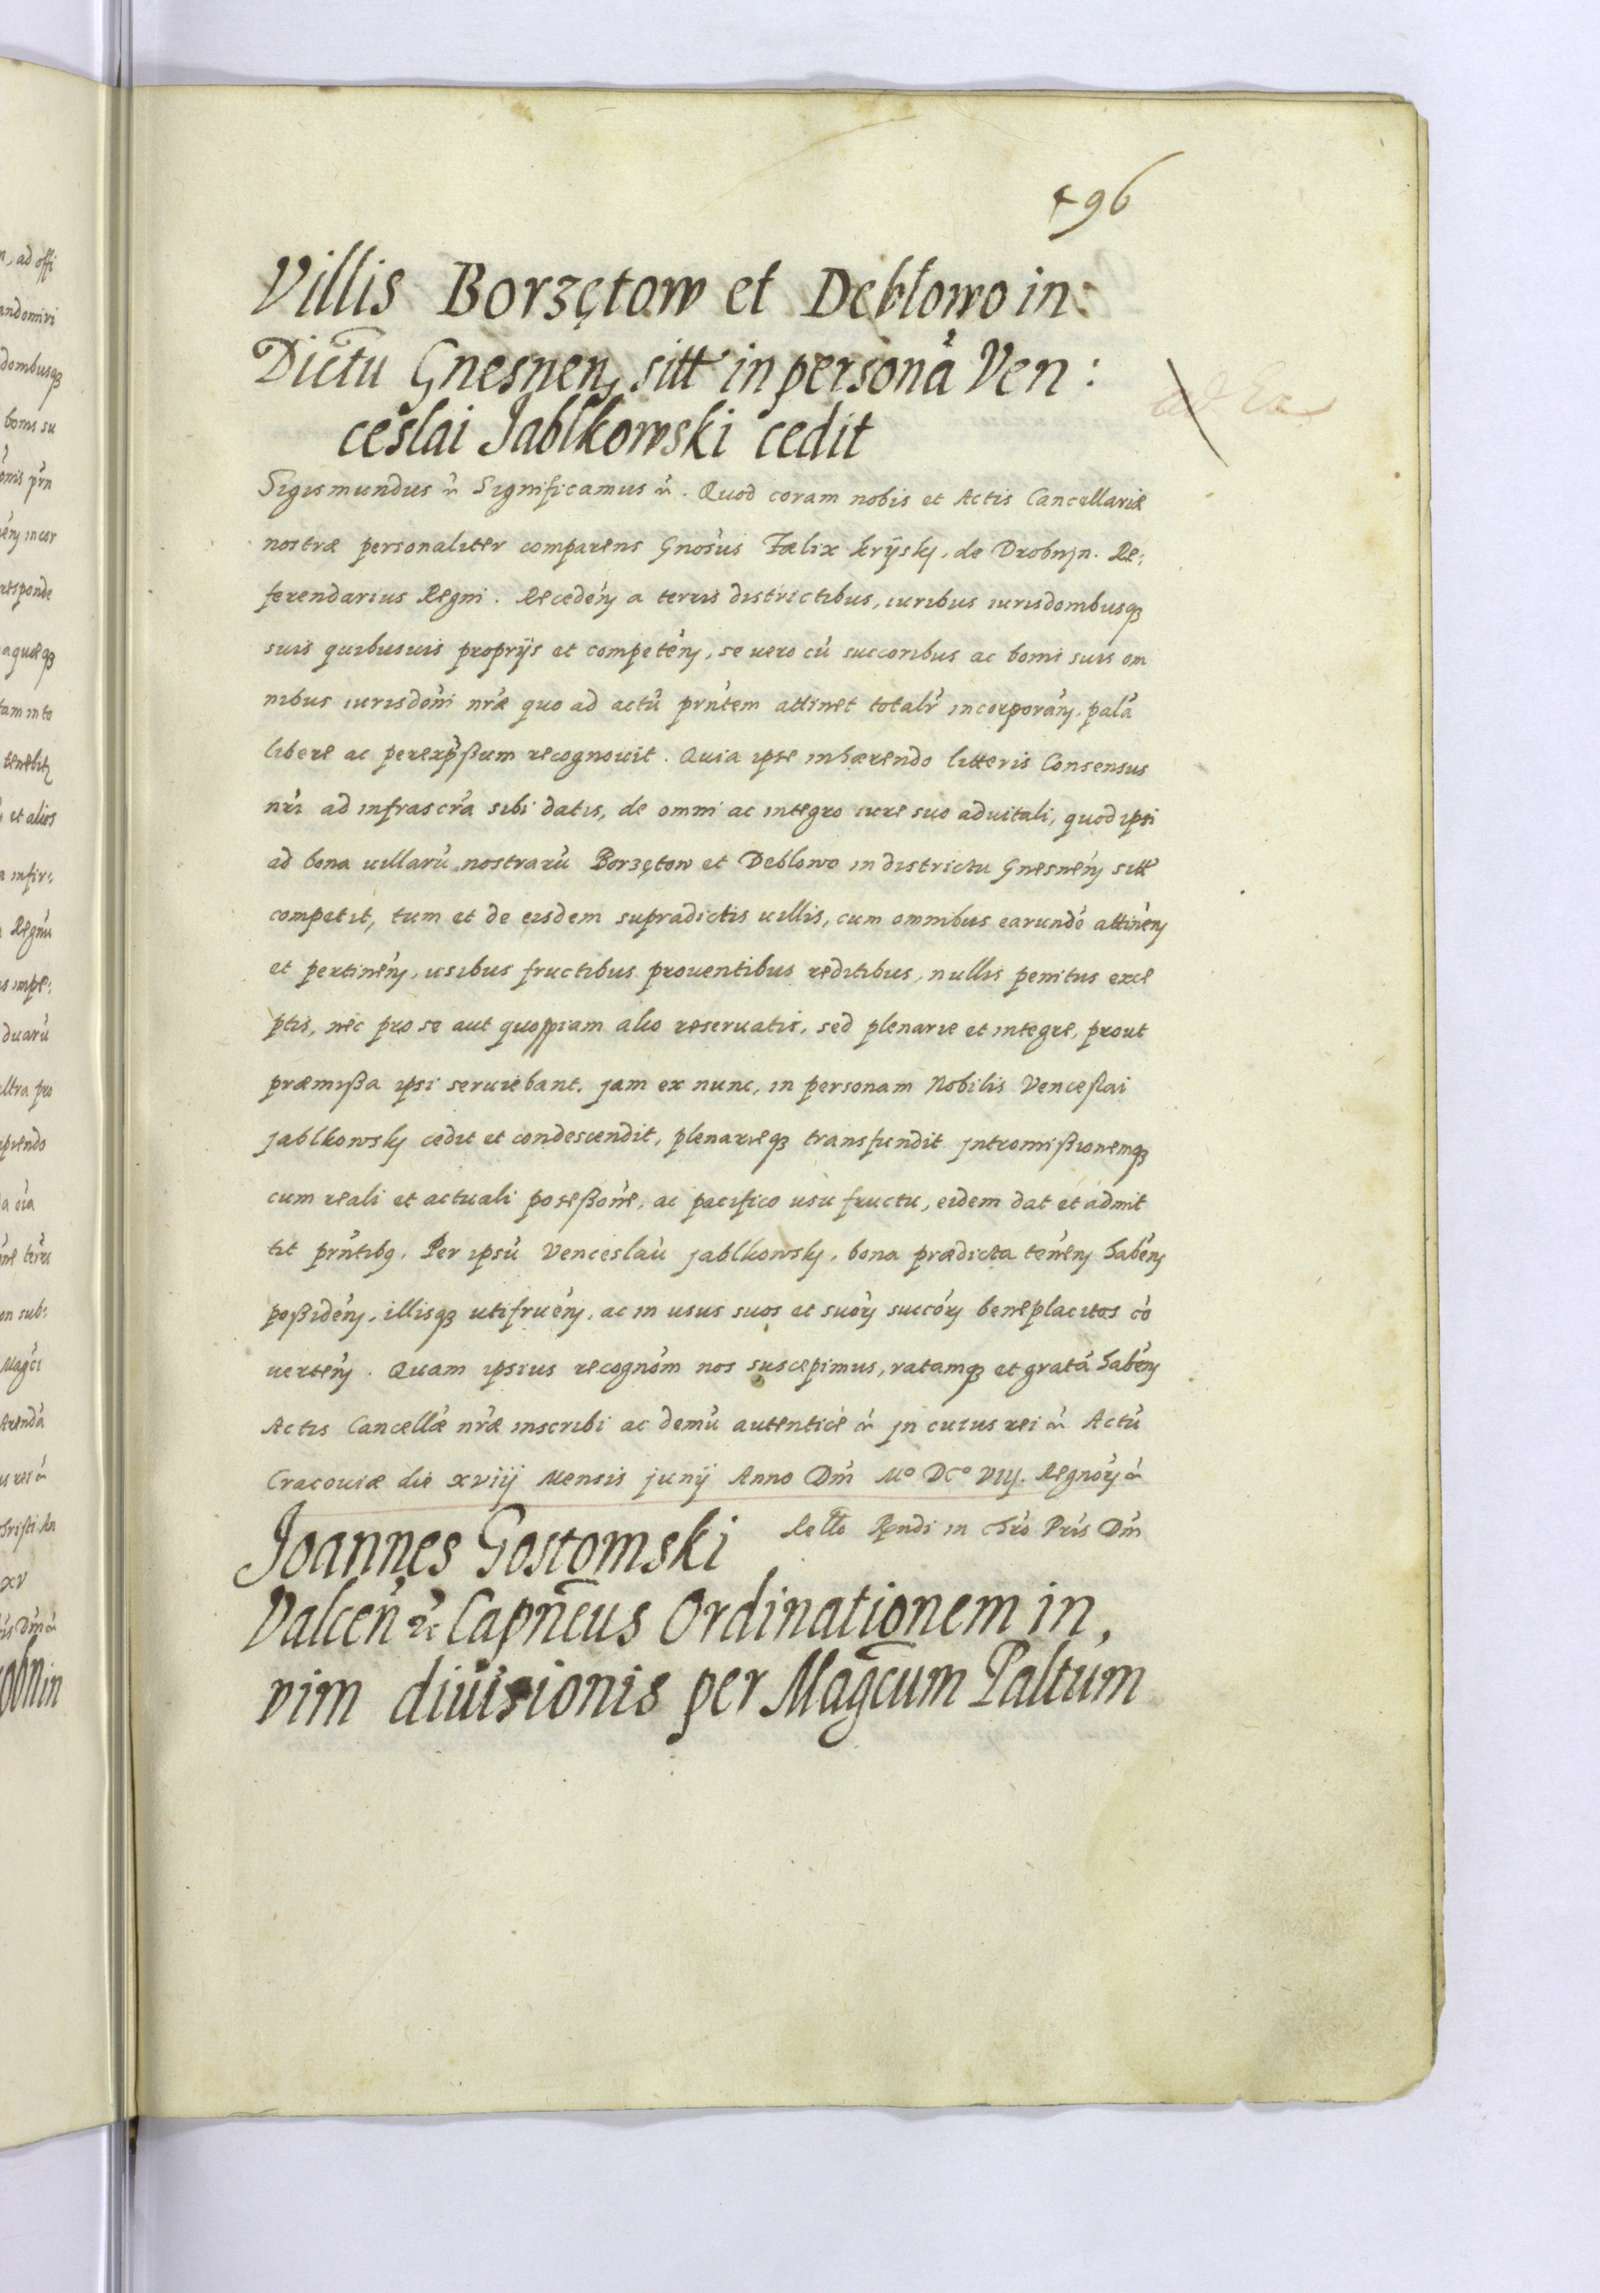 496
Villis Borzętow et Deblowo in:
Dictu Gnesnen sitt in personá Ven:
ceslai Jablkowski cedit
Sigismundus etc Significamus etc. Quod coram nobis et Actis Cancellariæ
nostræ personaliter comparens Gnosus Fælix Krÿsky de Drobnyn. Re:
ferendarius Regni. Recedén a terris districtibus, iuribus iurisdombusq
suis quibusuis proprijs et competén, se uero cú succoribus ac bonis suis om
nibus iurisdoni nræ quo ad actú prntem attinet totalr incorporán, palá
libere ac perexpßum recognouit. Quia ipse inhærendo litteris Consensus
nri ad infrascra sibi datis, de omni ac integro iure suo aduitali, quod ipsi
ad bona uillarú nostrarú Borzętow et Deblowo in districtu Gnesnén sitt
competit, tum et de eisdem supradictis uillis, cum omnibus earundé attinén
et pertinén, usibus fructibus prouentibus reditibus, nullis penitus exce
ptis, nec pro se aut quopiam alio reseruatis, sed plenarie et integre, prout
præmißa ipsi seruiebant, jam ex nunc, in personam Nobilis Venceslai
Jablkowsky cedit et condescendit, plenarieq transfundit Jntromißionemq
cum reali et actuali poseßone, ac pacifico usu fructu, eidem dat et admit
tit prntibq. Per ipsú Venceslaú Jablkowsky, bona prædicta tenén habén
poßidén, illisq utifruén, ac in usus suos et suor succór beneplacitos có
uertén. Quam ipsius recognom nos suscepimus, ratamq et gratá habén
Actis Cancellæ nræ inscribi ac demú autentice etc Jn cuius rei etc Actú
Cracouiæ die xviij Mensis Junij Anno Dm Mo DCo VIIJ. Regnor etc
Relto Rndi in Chro Pris Dm
Joannes Gostomski
Valcen etc Capneus Ordinationem in
vim diuisionis per Magcum Paltum